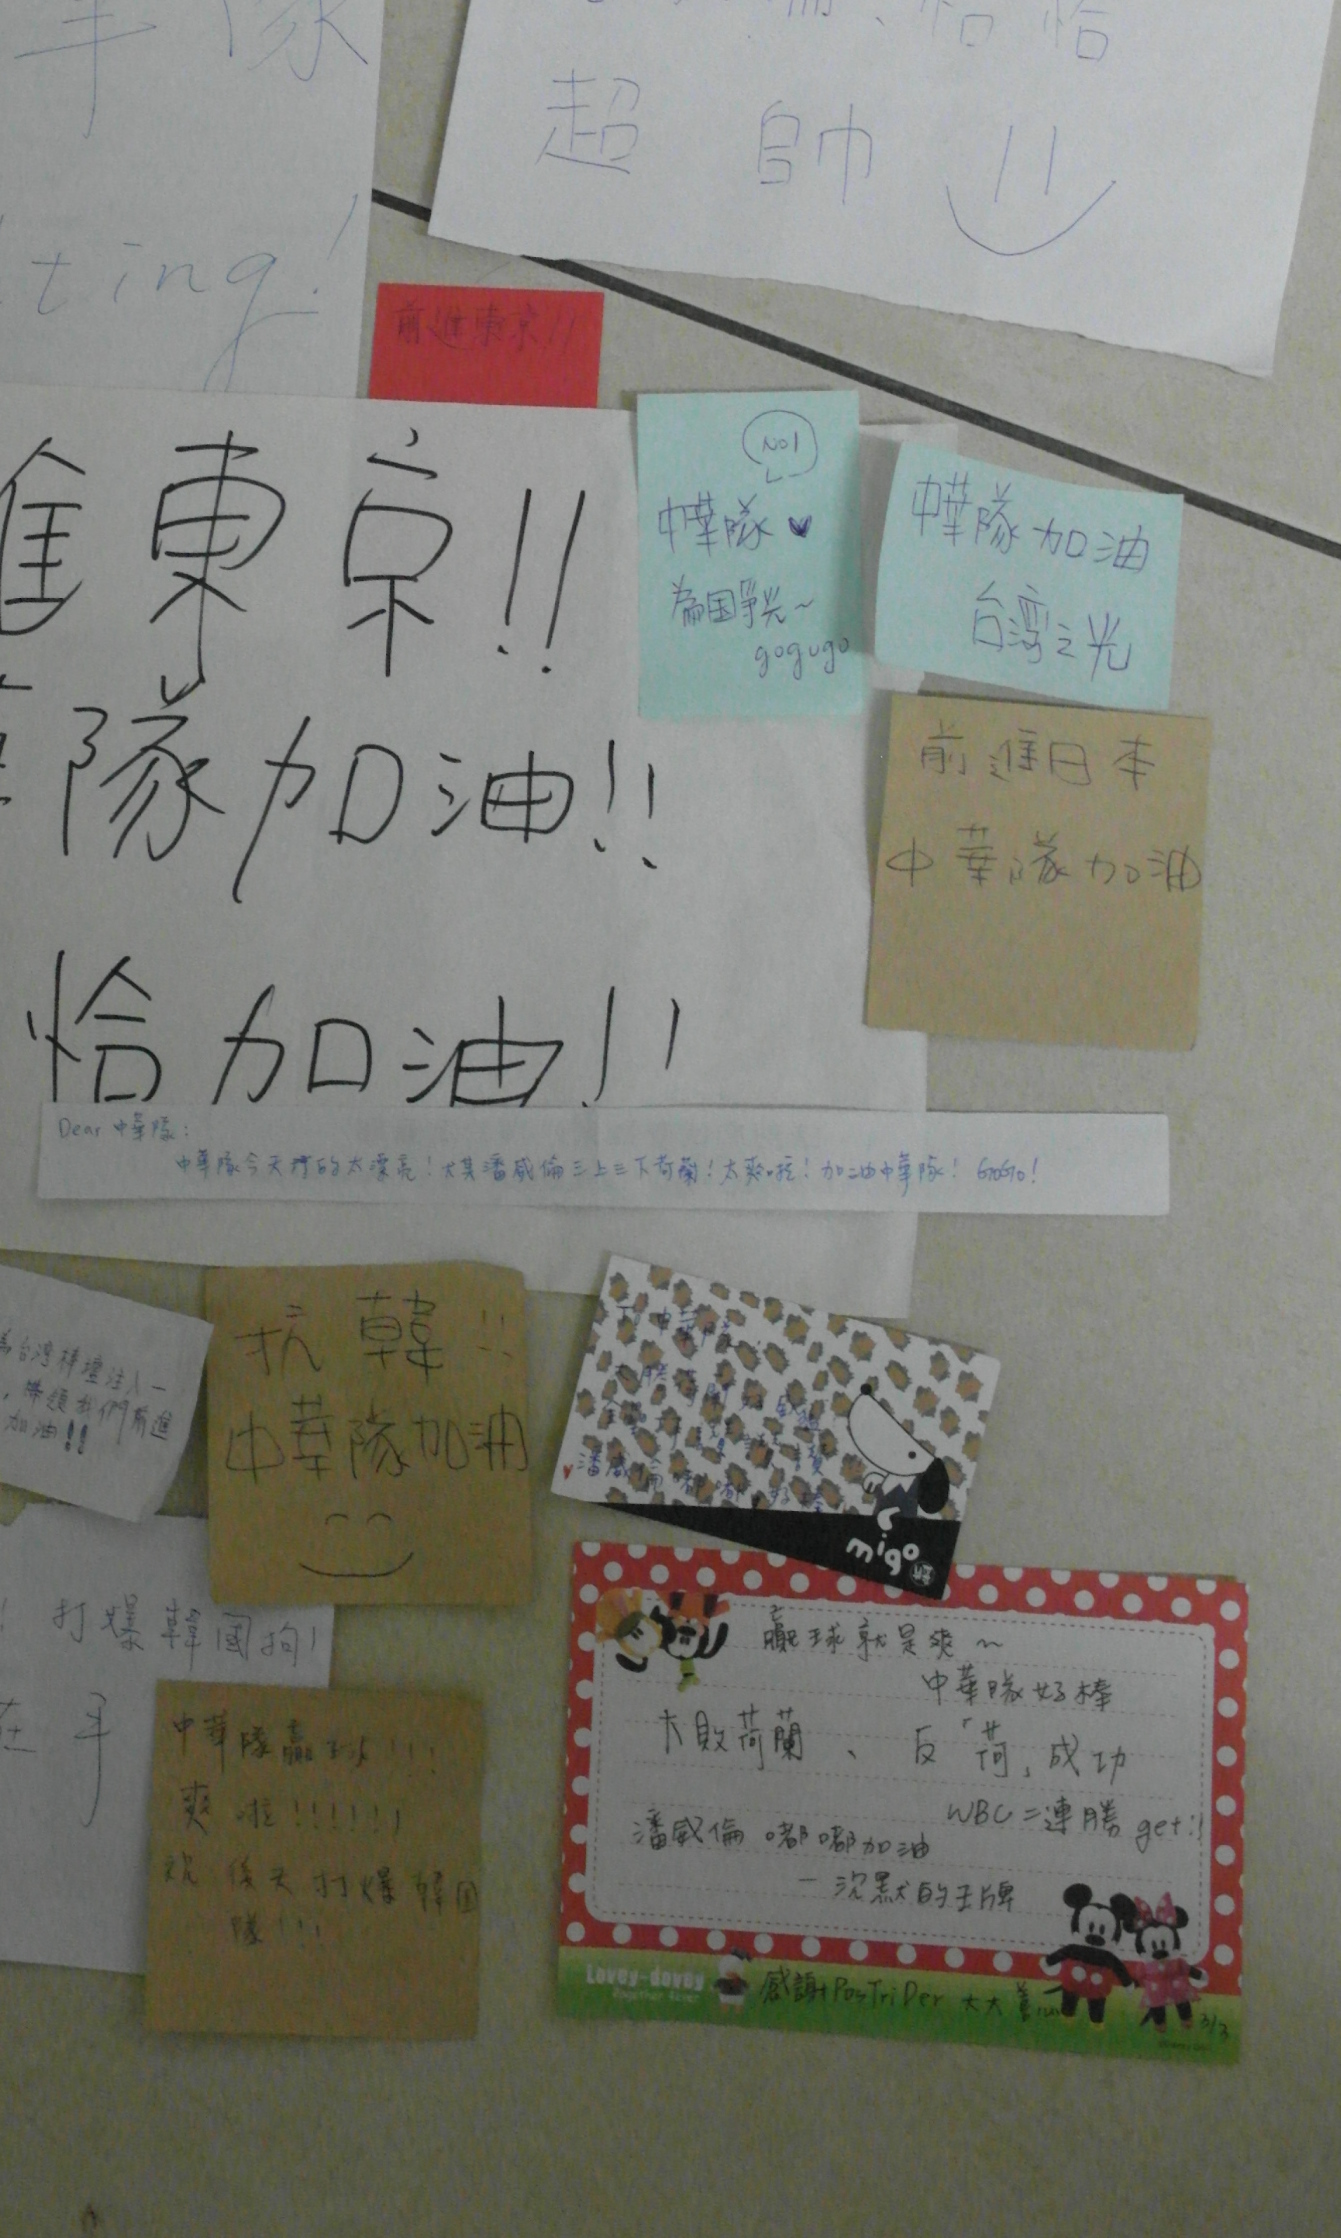 隊
ting!
恰恰
超帥
前進東京!!
進東京!!
隊加油!!
恰加油!!
No1
中華隊♥
為国爭光~
gogogo
中華隊加油
台灣之光
前進日本
中華隊加油
Dear 中華隊:
中華隊今天打的太漂亮!尤其潘威倫三上三下荷蘭!太爽啦!加油中華隊! GoGo!
為台灣棒壇注入一
,帶領我們前進
加油!!
抗韓!!
中華隊加油
To 中華隊:
♥潘威倫嘟嘟,好棒
migo
! 打爆韓國狗!
在手
中華隊贏球!!!
爽啦!!!!!!
祝後天打爆韓国
隊!!!
贏球就是爽~
中華隊好棒
大敗荷蘭、反「荷」成功
WBC二連勝 get!!
潘威倫嘟嘟加油
-沉默的王牌
Lovey-dovey
Together 4ever
感謝+PosTriDer 大大
3/3